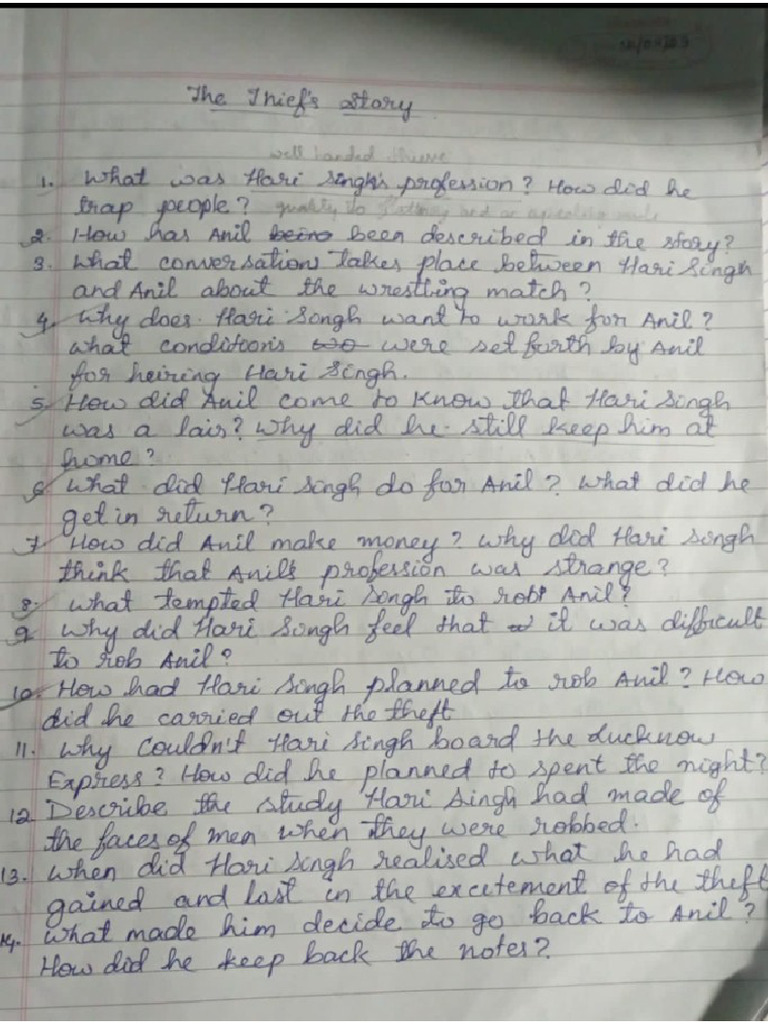 The Thief's Story
well handed thieve
1. What was Hari Singh's profession? How did he
trap people?
2. How has Anil being been described in the story?
3. What conversation takes place between Hari Singh
and Anil about the wrestling match?
4. Why does Hari Singh want to work for Anil?
What conditions were set forth by Anil
for heiring Hari Singh.
5. How did Anil come to know that Hari Singh
was a lair? Why did he still keep him at
home?
6. What did Hari Singh do for Anil? What did he
get in return?
7. How did Anil make money? Why did Hari Singh
think that Anil's profession was strange?
8. What tempted Hari Singh to rob Anil?
9. Why did Hari Singh feel that it was difficult
to rob Anil?
10. How had Hari Singh planned to rob Anil? How
did he carried out the theft
11. Why couldn't Hari Singh board the Lucknow
Express? How did he planned to spent the night?
12. Describe the study Hari Singh had made of
the faces of men when they were robbed.
13. When did Hari Singh realised what he had
gained and lost in the excetement of the theft
14. What made him decide to go back to Anil?
How did he keep back the notes?